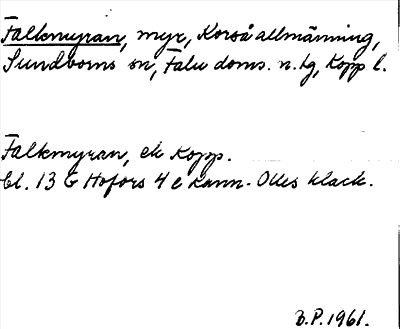 Falkmyran, myr, Korså allmänning,
Sundborns sn, Falu doms. n. tg, Kopp l.
Falkmyran, ek Kopp.
bl. 13 G Hofors 4 e Kann- Olles klack.
B.P. 1961.